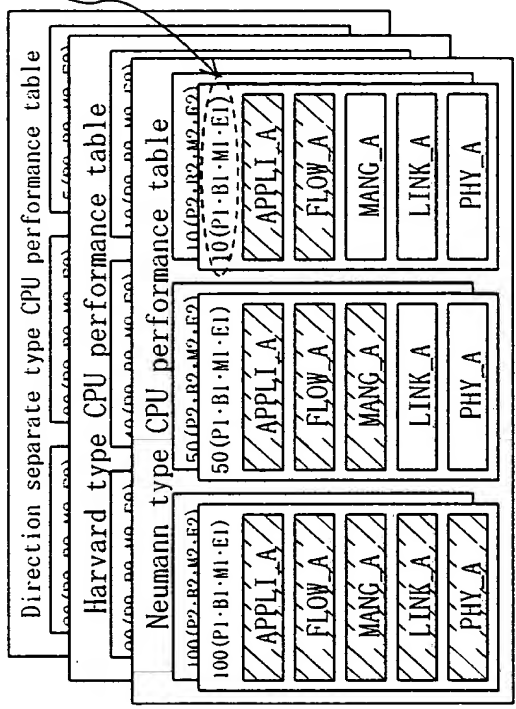 Direction separate type CPU performance table
Harvard type CPU performance table
Neumann type CPU performance table
100(P2·B2·M2·E2)
100(P1·B1·M1·E1)
APPLI_A
FLOW_A
MANG_A
LINK_A
PHY_A
50(P2·B2·M2·E2)
50(P1·B1·M1·E1)
APPLI_A
FLOW_A
MANG_A
LINK_A
PHY_A
10(P2·B2·M2·E2)
10(P1·B1·M1·E1)
APPLI_A
FLOW_A
MANG_A
LINK_A
PHY_A